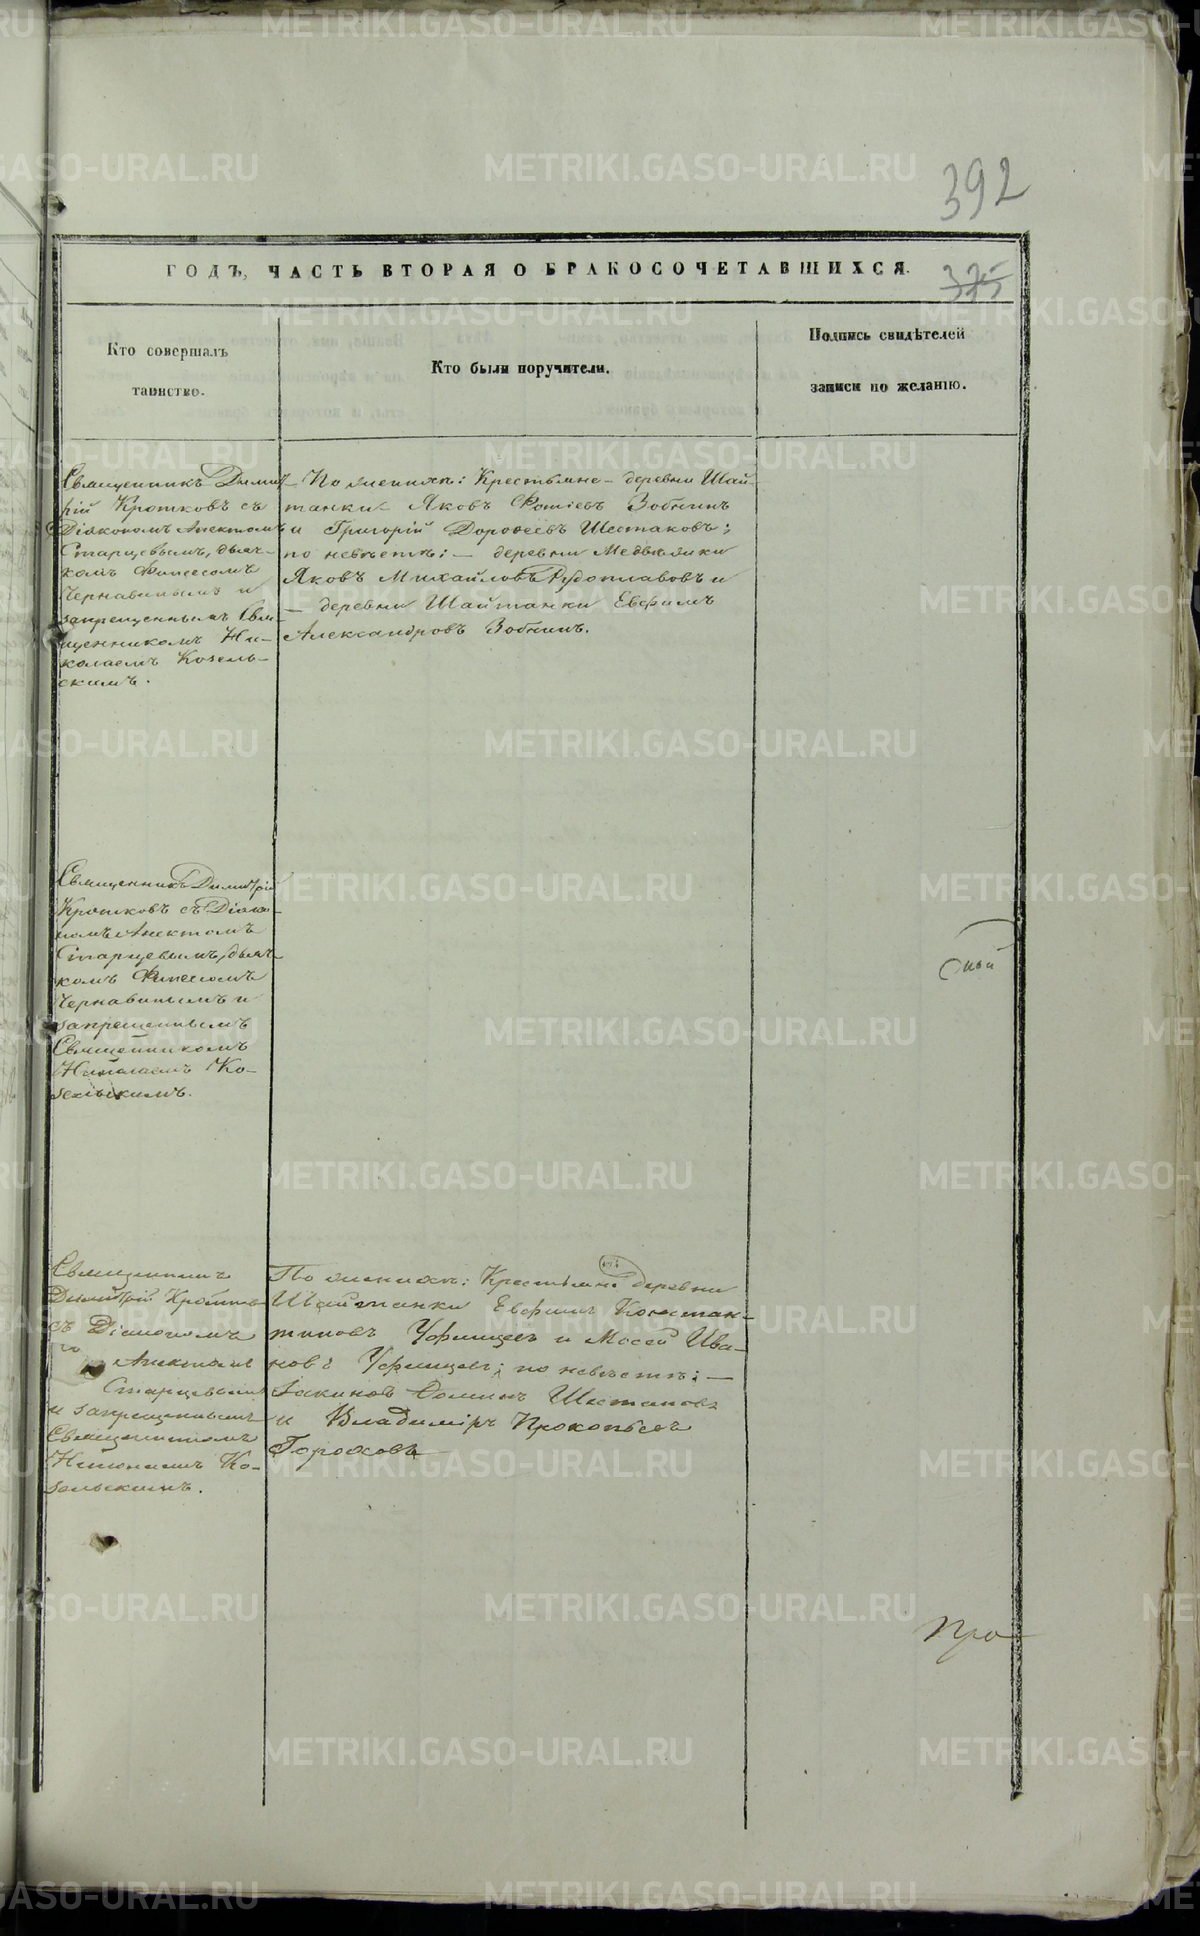 392
ГОДЪ, ЧАСТЬ ВТОРАЯ О БРАКОСОЧЕТАВШИХСЯ.
375
Кто совершалъ
таинство.
Кто были поручители.
Подпись свидѣтелей
записи по желанію.
Священникъ Димит-
рій Кротковъ съ
Діакономъ Аниктомъ
Старцевымъ, дьяч-
комъ Финеесомъ
Чернавинымъ и
запрещеннымъ Свя-
щенникомъ Ни-
колаемъ Козель-
скимъ.
По женихѣ: Крестьяне – деревни Шай-
танки Яковъ Фотіевъ Зобнинъ
и Григорій Дороѳеевъ Шестаковъ;
по невѣстѣ: – деревни Медвѣдки
Яковъ Михайловъ Рудоплавовъ и
– деревни Шайтанки Евфимъ
Александровъ Зобнинъ.
Священникъ Димитрій
Кротковъ съ Діако-
номъ Аниктомъ
Старцевымъ, дьяч-
комъ Финеесомъ
Чернавинымъ и
запрещеннымъ
Священникомъ
Николаемъ Ко-
зельскимъ.
Священникъ
Димитрій Кротковъ
съ Діакономъ
Аниктомъ
Старцевымъ
и запрещеннымъ
Священникомъ
Николаемъ Ко-
зельскимъ.
По женихѣ: Крестьяне деревни
Шайтанки Евфимъ Констан-
тиновъ Уфимцевъ и Мосей Ива-
новъ Уфимцевъ; по невѣстѣ: –
Іакинѳъ Ѳоминъ Шестаковъ
и Владиміръ Прокопьевъ
Гороховъ
METRIKI.GASO-URAL.RU